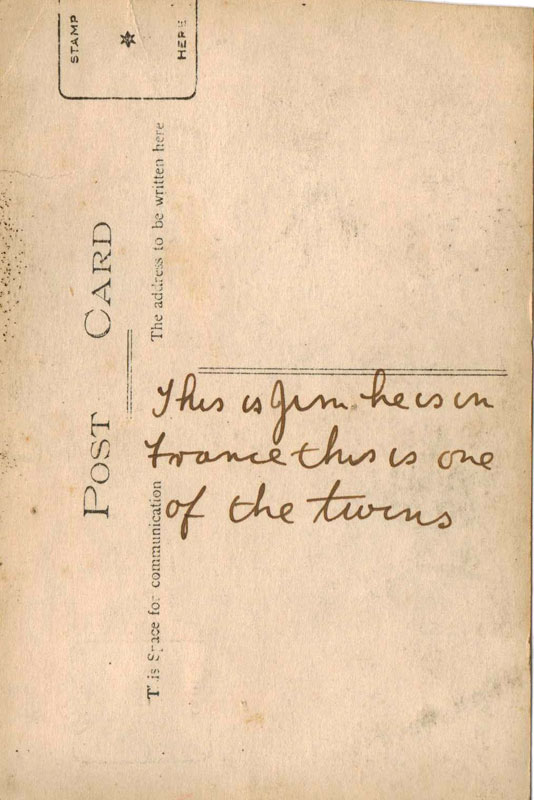 STAMP
HERE
POST CARD
The address to be written here
This Space for communication
This is Jim he is in
France this is one
of the twins